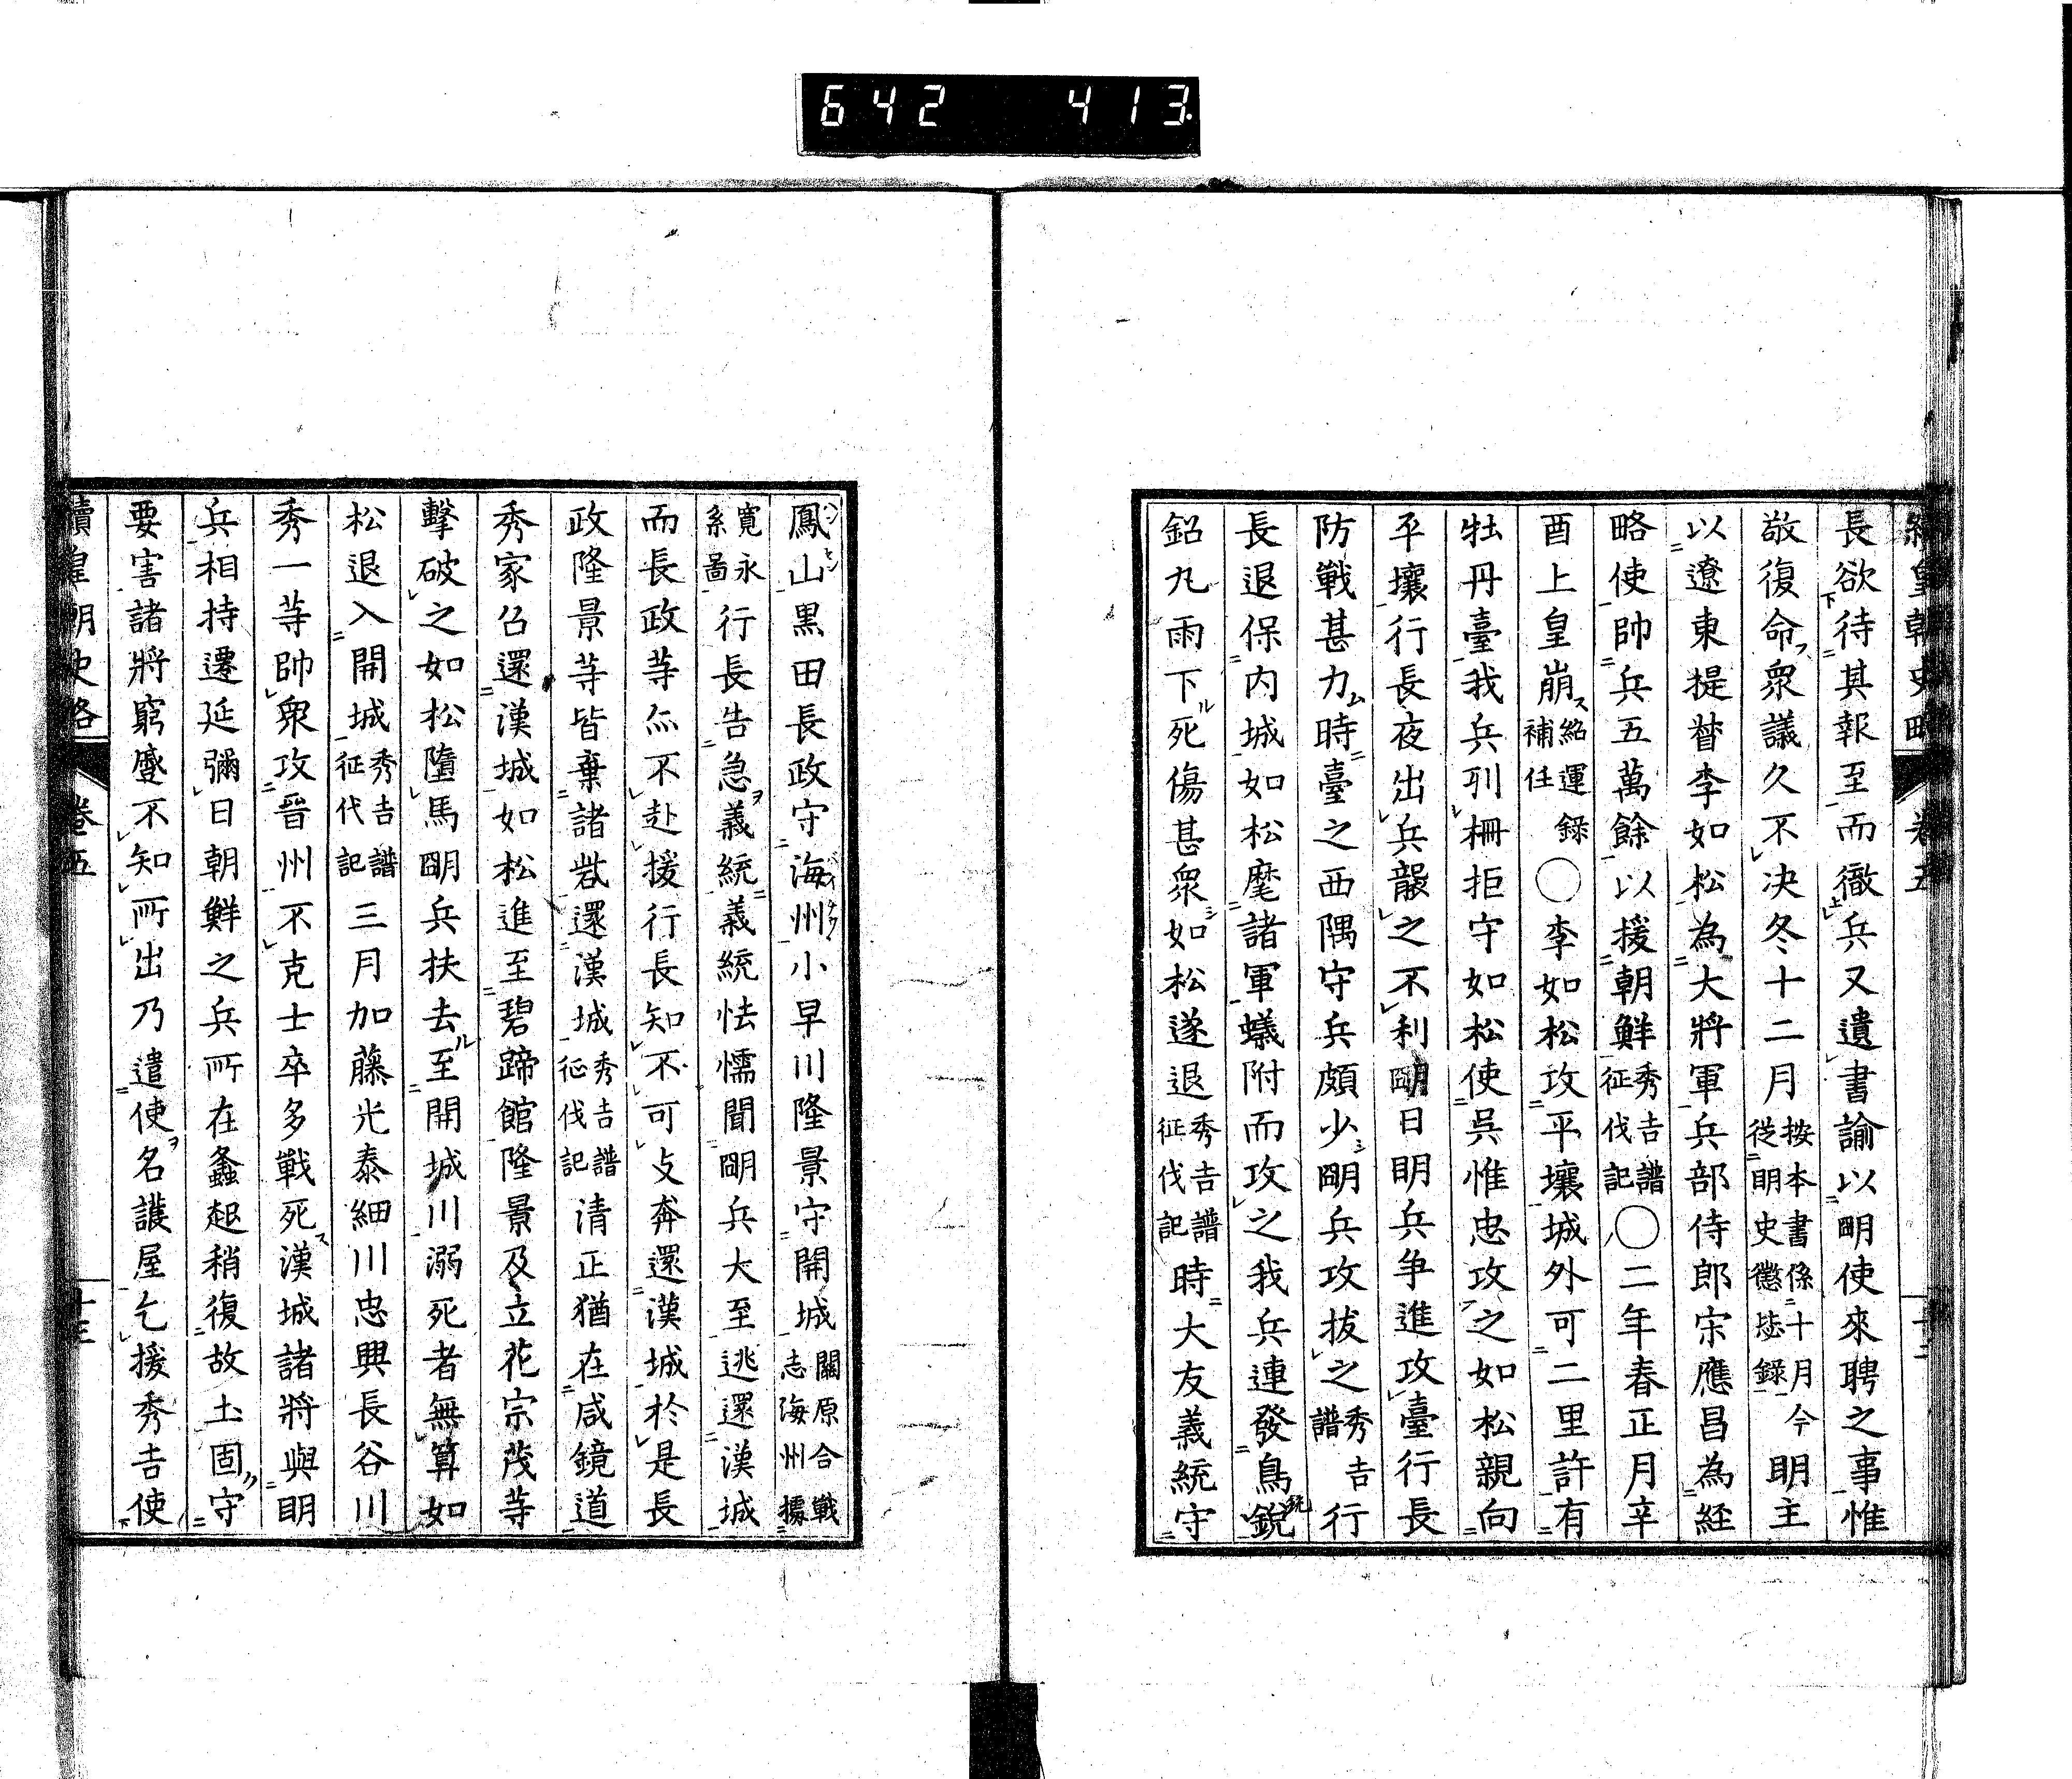 642 413
續皇朝史略 卷五 十二
長欲待其報至而徹兵又遺書諭以明使來聘之事惟
敬復命衆議久不决冬十二月按本書係十月今從明史懲毖錄明主
以遼東提督李如松為大將軍兵部侍郎宋應昌為経
略使帥兵五萬餘以援朝鮮秀吉譜征伐記〇二年春正月辛
酉上皇崩紹運録補任〇李如松攻平壤城外可二里許有
牡丹臺我兵列柵拒守如松使呉惟忠攻之如松親向
平壤行長夜出兵襲之不利明日明兵争進攻臺行長
防戰甚力時臺之西隅守兵頗少明兵攻拔之秀吉譜行
長退保内城如松麾諸軍蟻附而攻之我兵連發鳥銃
鉛丸雨下死傷甚衆如松遂退秀吉譜征伐記時大友義統守
鳳山黒田長政守海州小早川隆景守開城關原合戰志海州據
寛永系圖行長告急義統義統怯懦聞明兵大至逃還漢城
而長政等亦不赴援行長知不可支奔還漢城於是長
政隆景等皆棄諸砦還漢城秀吉譜征伐記清正猶在咸鏡道
秀家召還漢城如松進至碧蹄館隆景及立花宗茂等
擊破之如松墮馬明兵扶去至開城川溺死者無算如
松退入開城秀吉譜征代記三月加藤光泰細川忠興長谷川
秀一等帥衆攻晉州不克士卒多戰死漢城諸將與明
兵相持遷延彌日朝鮮之兵所在蠡起稍復故土固守
要害諸將窮蹙不知所出乃遣使名護屋乞援秀吉使
續皇朝史略 卷五 十三